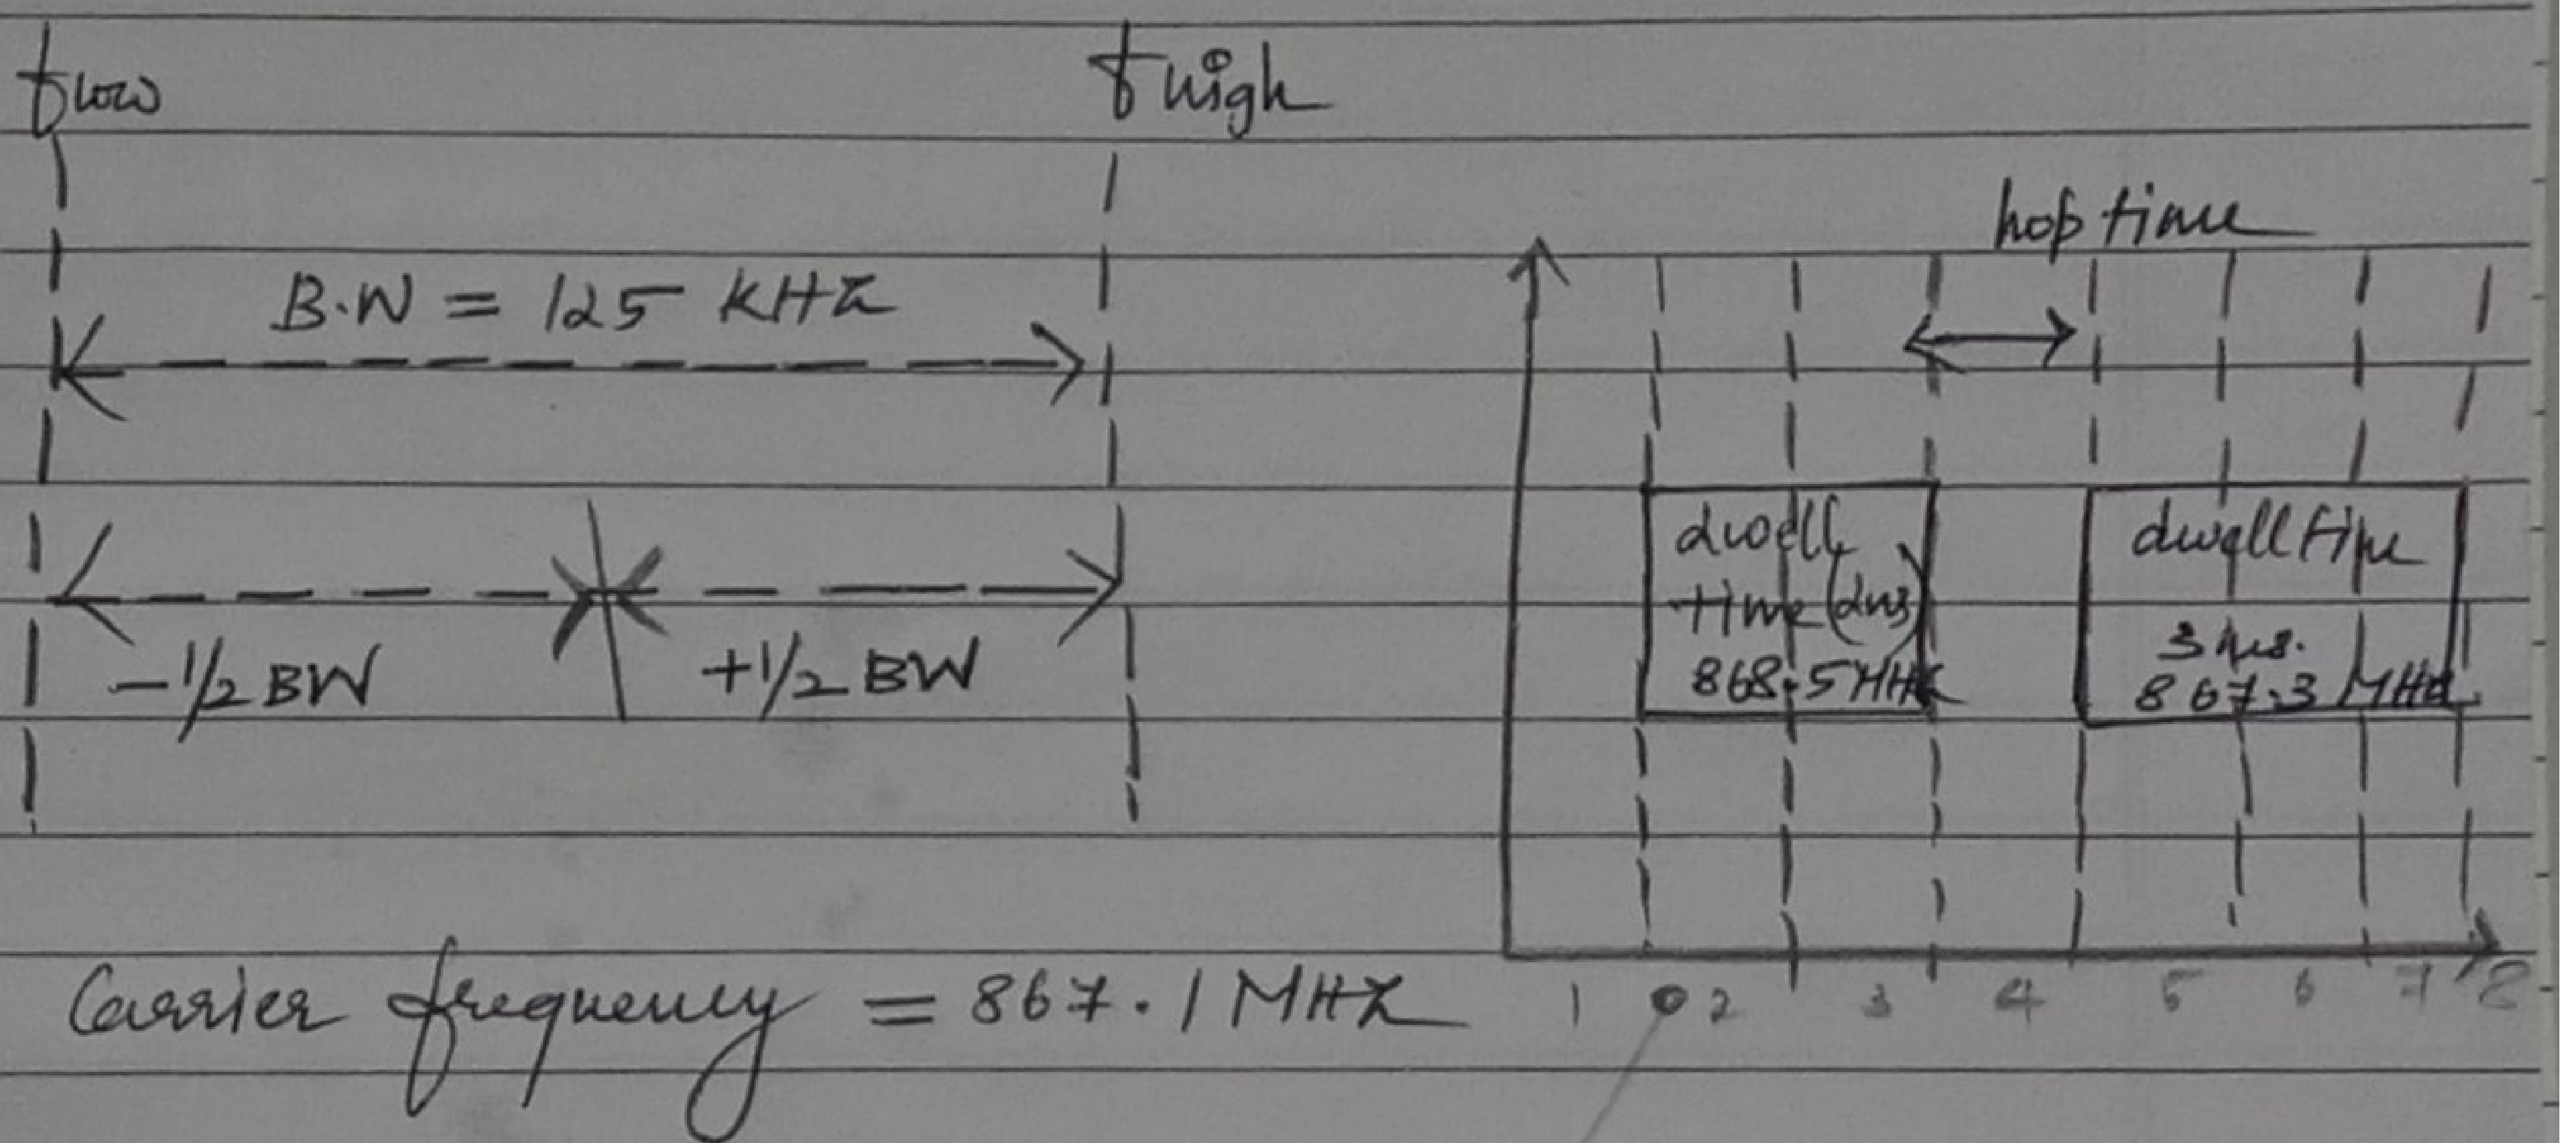 flow
fhigh
B.W = 125 KHZ
-1/2 BW
+1/2 BW
Carrier frequency = 867.1 MHZ
hop time
dwell
time
868.5 MHz
dwell time
867.3 MHz
1 2 3 4 5 6 7 8